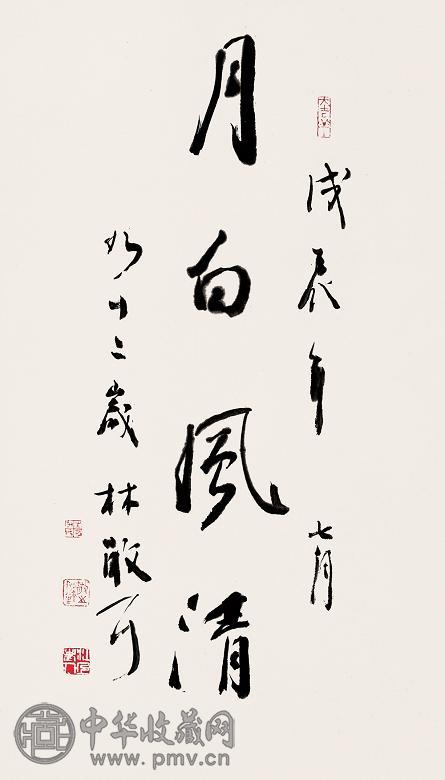 戊辰年七月
月白風清
九十二歲林散耳
中华收藏网
www.pmv.cn